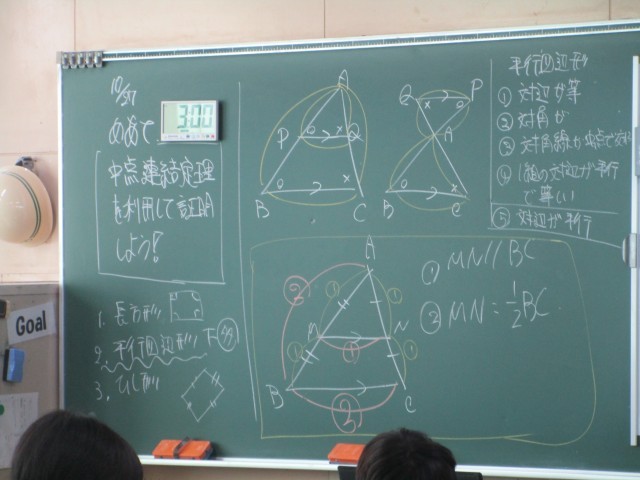 10/31
めあて
3:00
中点連結定理
を利用して証明
しよう!
1. 長方形
2. 平行四辺形
3. ひし形
Goal
A
P
Q
B
C
Q
P
A
B
C
平行四辺形
① 対辺が等
② 対角が
③ 対角線が中点で交わ
④ 1組の対辺が平行
で等しい
⑤ 対辺が平行
A
② ① ①
M N
① ① ①
B C
②
① MN//BC
② MN=1/2BC